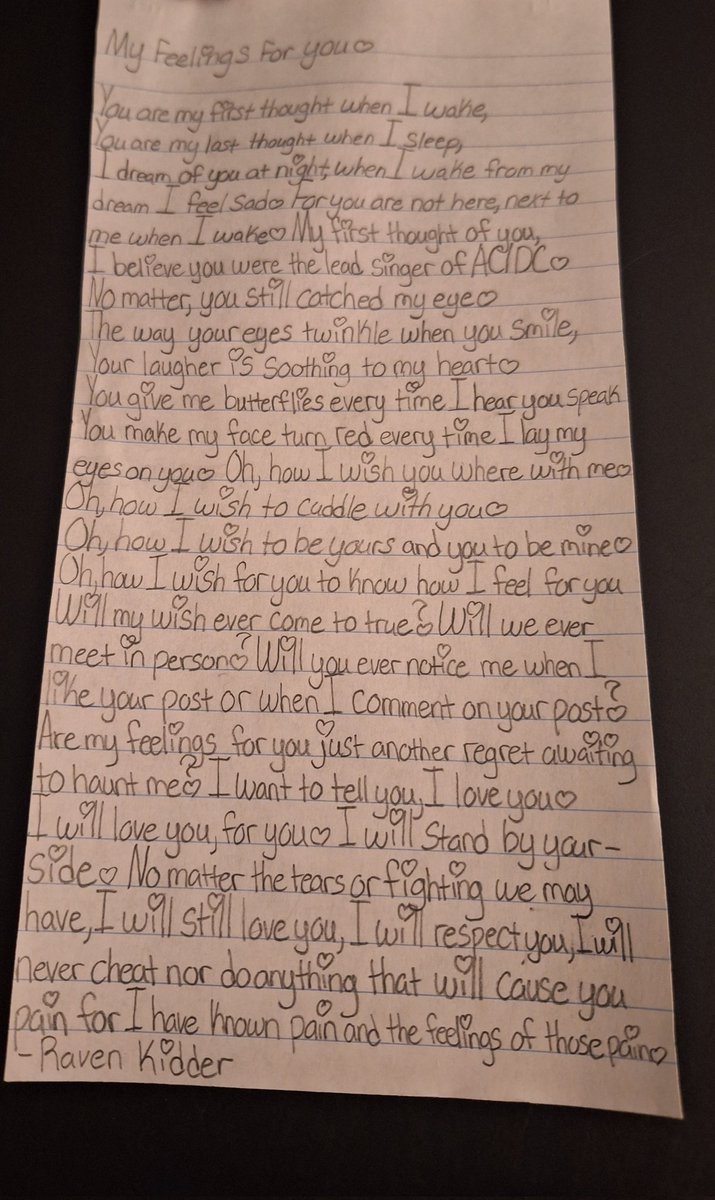 My Feelings For you♡
You are my first thought when I wake,
You are my last thought when I sleep,
I dream of you at night, when I wake from my
dream I feel sad♡ For you are not here, next to
me when I wake♡ My first thought of you,
I believe you were the lead singer of AC/DC♡
No matter, you still catched my eye♡
The way your eyes twinkle when you smile,
Your laugher is soothing to my heart♡
You give me butterflies every time I hear you speak
You make my face turn red every time I lay my
eyes on you♡ Oh, how I wish you where with me♡
Oh, how I wish to cuddle with you♡
Oh, how I wish to be yours and you to be mine♡
Oh, how I wish for you to know how I feel for you
Will my wish ever come to true? Will we ever
meet in person? Will you ever notice me when I
like your post or when I comment on your post?
Are my feelings for you just another regret awaiting
to haunt me? I want to tell you, I love you♡
I will love you, for you♡ I will stand by your-
side♡ No matter the tears or fighting we may
have, I will still love you, I will respect you, I will
never cheat nor do anything that will cause you
pain for I have known pain and the feelings of those pain♡
-Raven Kidder